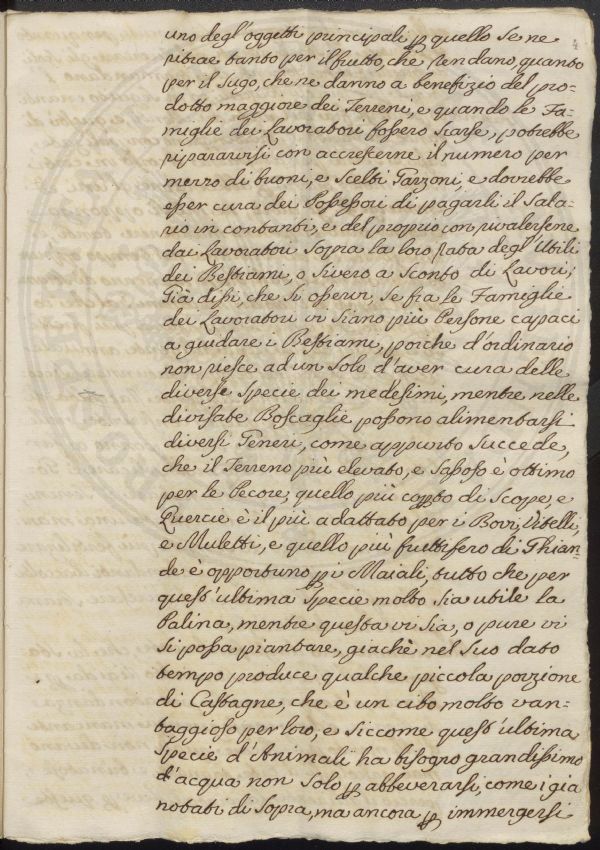 uno degl'oggetti principali p quello se ne
ritrae tanto per il frutto, che rendano, quanto
per il sugo, che ne danno a benefizio del pro=
dotto maggiore dei Terreni, e quando le Fa=
miglie dei Lavoratori fossero scarse, potrebbe
ripararvisi con accrescerne il numero per
mezzo di buoni, e scelti Garzoni, e dovrebbe
esser cura dei Possessori di pagarli il sala=
rio in contanti, e del proprio con rivalersene
dai Lavoratori sopra la loro rata degl'Utili
dei Bestiami, o sivero a sconto di Lavori;
Già dissi, che si osservi, se fra le Famiglie
dei Lavoratori vi siano più Persone capaci
a guidare i Bestiami, poiche d'ordinario
non riesce ad un solo d'aver cura delle
diverse specie dei medesimi, mentre nelle
divisate Boscaglie possono alimentarsi
diversi Generi, come appunto succede,
che il Terreno più elevato, e sassoso è ottimo
per le Pecore, quello più coperto di Scope, e
Quercie è il più adattato per i Bovi, Vitelli,
e Muletti, e quello più fruttifero di Ghian=
de è opportuno p i Maiali, tutto che per
quest'ultima specie molto sia utile la
Palina, mentre questa vi sia, o pure vi
si possa piantare, giachè nel suo dato
tempo produce qualche piccola porzione
di Castagne, che è un cibo molto van=
taggioso per loro, e siccome quest'ultima
specie d'Animali ha bisogno grandissimo
d'acqua non solo p abbeverarsi, come i già
notati di sopra, ma ancora p immergersi